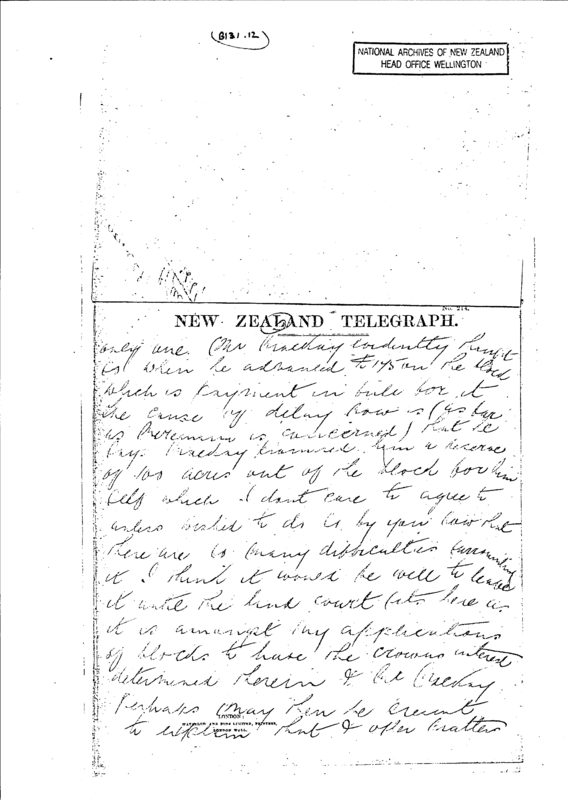 (B131.12)
NATIONAL ARCHIVES OF NEW ZEALAND
HEAD OFFICE WELLINGTON
NEW ZEALAND TELEGRAPH.
only one. Mr Mackay evidently thought
so when he advanced £145 on the block
which is payment in full for it
the cause of delay now is (as far
as is concerned) that he
says Mackay promised him a reserve
of 100 acres out of the block for him
self which I dont care to agree to
unless wished to do so by you now that
there are so many difficulties surrounding
it I think it would be well to leave
it until the land court sits here as
it is amongst my applications
of blocks to have the crowns interest
determined therein & Mr Mackay
perhaps may then be present
LONDON:
WATERLOW AND SONS LIMITED, PRINTERS,
LONDON WALL.
to explain that & other matters